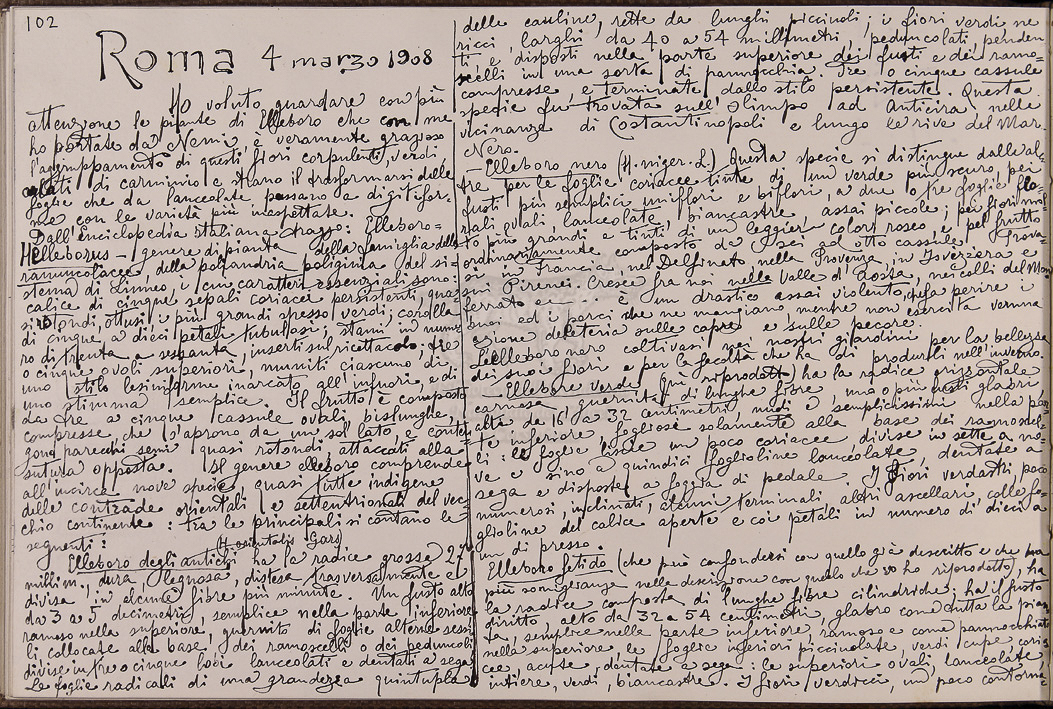 102
Roma 4 marzo 1908
Ho voluto guardare con più
attenzione le piante di Elleboro che con me
ho portate da Nemi, è veramente grazioso
l'aggruppamento di questi fiori corpulenti, verdi
di carminio e strano il trasformarsi delle
foglie che da lanceolate, passano a digitifor-
me con le varietà più inaspettate.
Dall'Enciclopedia italiana traggo: Elleboro=
Helleborus — genere di pianta della famiglia delle
ranuncolacee, della poliandria poliginia del si-
stema di Linneo, i cui caratteri essenziali sono:
calice di cinque sepali coriacei persistenti, qua-
si rotondi, ottusi, i più grandi spesso verdi; corolla
di cinque a dieci petali tubulosi; stami in nume
ro di trenta a sessanta, inserti sul ricettacolo; tre
o cinque ovoli superiori, muniti ciascuno di
uno stilo lesiniforme inarcato all'infuori, e di
uno stimma semplice. Il frutto è composto
da tre a cinque cassule ovali, bislunghe,
compresse, che s'aprono da un sol lato e conten-
gono parecchi semi quasi rotondi, attaccati alla
sutura opposta. Il genere elleboro comprende
all'incirca nove specie, quasi tutte indigene
delle contrade orientali e settentrionali del vec-
chio continente: tra le principali si contano le
seguenti:
H. orientalis Gars
Elleboro degli antichi ha la radice grossa 27
millim., dura, legnosa, distesa trasversalmente e
divisa in alcune fibre più minute. Un fusto alto
da 3 a 5 decimetri, semplice nella parte inferiore
ramoso nella superiore, guernito di foglie alterne sessi
li, collocate alla base dei ramoscelli o dei peduncoli
divise in tre o cinque lobi lanceolati e dentati a sega
Le foglie radicali di una grandezza quintupla
delle cauline, rette da lunghi picciuoli; i fiori verdi ne
ricci, larghi da 40 a 54 millimetri, peduncolati, penden
ti, e disposti nella parte superiore dei fusti e dei ramo-
scelli in una sorta di pannocchia. Tre o cinque cassule
compresse, e terminate dallo stilo persistente. Questa
specie fu trovata sull'Olimpo ad Anticira, nelle
vicinanze di Costantinopoli e lungo le rive del Mar
Nero.
— Elleboro nero (H. niger. L.) Questa specie si distingue dalle al-
tre per le foglie coriacee tinte di un verde più scuro, pei
fusti più semplici, uniflori e biflori, a due o tre foglie flo-
rali ovali, lanceolate, biancastre assai piccole; pei fiori mol
to più grandi e tinti di un leggier colori roseo, e pel frutto
ordinariamente composto da sei ad otto cassule. Trova-
si in Francia nel Delfinato nella Provenza, in Isvezzera e
sui Pirenei. Cresce fra noi nella Valle d'Aosta, nei colli del Mon
ferrato ecc. è un drastico assai violento, che fa perire i
buoi ed i porci che ne mangiano, mentre non esercita veruna
azione deleteria sulle capre e sulle pecore.
L'elleboro nero coltivasi nei nostri giardini per la bellezza
dei suoi fiori e per la facoltà che ha di produrli nell'inverno.
Elleboro verde (qui riprodotto) ha la radice orizzontale
carnosa, guernita di lunghe fibre, uno o più fusti glabri
alti da 16 a 32 centimetri, nudi e semplicissimi nella par
te inferiore, fogliosi solamente alla base dei ramoscel-
li: le foglie liscie un poco coriacee divise in sette a no-
ve e sino a quindici foglioline lanceolate, dentate a
sega e disposte a foggia di pedale I fiori verdastri poco
numerosi, inclinati, alcuni terminali altri ascellari, colle fo-
glioline del calice aperte e coi petali in numero di dieci a
un di presso.
Elleboro fetido (che può confondersi con quello già descritto e che ha
più somiglianza nella descrizione con quello che io ho riprodotto), ha
la radice composta di lunghe fibre cilindriche; ha il fusto
diritto, alto da 32 a 54 centimetri, glabro come tutta la pian
ta, semplice nella parte inferiore, ramoso e come pannocchiato
nella superiore, le foglie inferiori picciuolate, verdi cupe coria
cee, acute, dentate a sega: le superiori ovali, lanceolate,
intiere, verdi, biancastre. I fiori verdicci, un poco contorna-